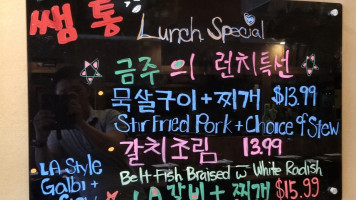 쌤통
Lunch Special
금주의 런치특선
목살구이+찌개 $13.99
Stir Fried Pork + Choice of Stew
갈치조림 13.99
Belt Fish Braised w White Radish
LA갈비+찌개 $15.99
LA Style
Galbi +